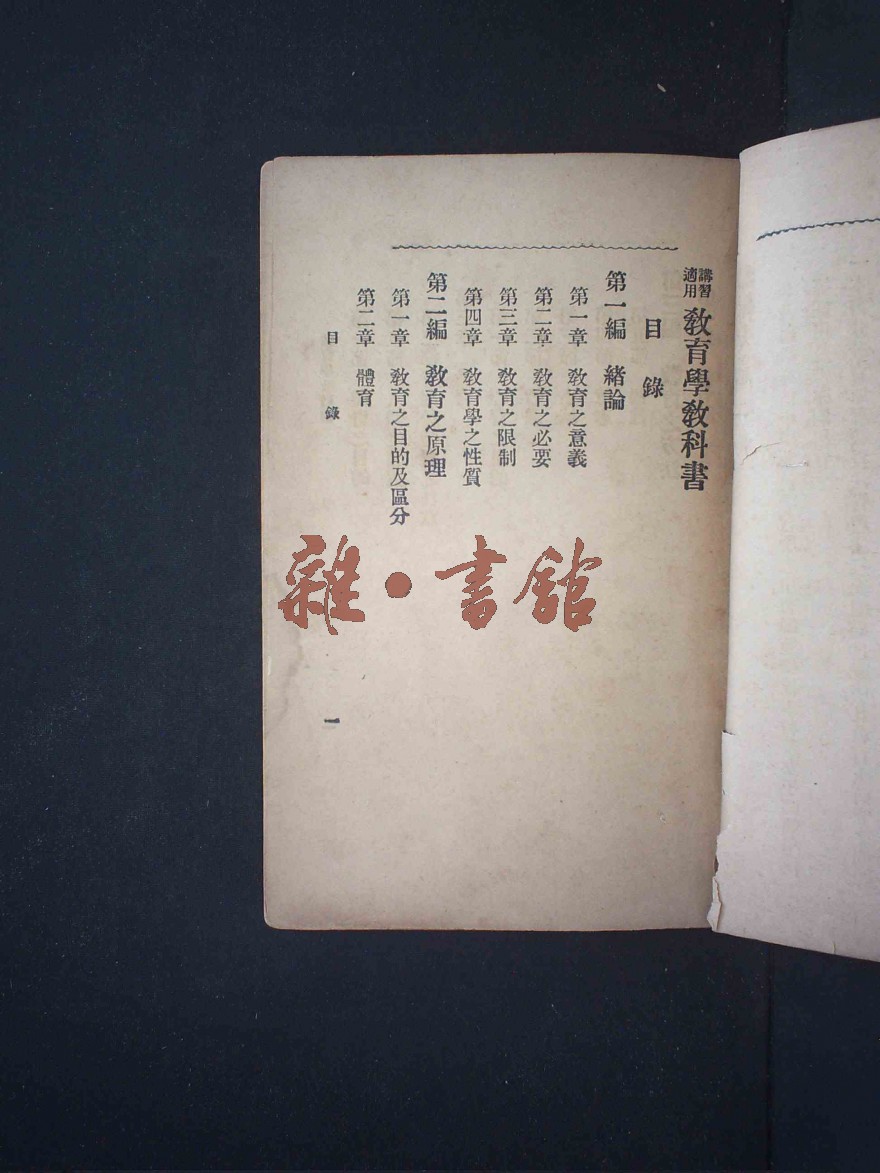 講習適用 敎育學敎科書
目錄
第一編 緒論
第一章 敎育之意義
第二章 敎育之必要
第三章 敎育之限制
第四章 敎育學之性質
第二編 敎育之原理
第一章 敎育之目的及區分
第二章 體育
目錄 一
雜·書館